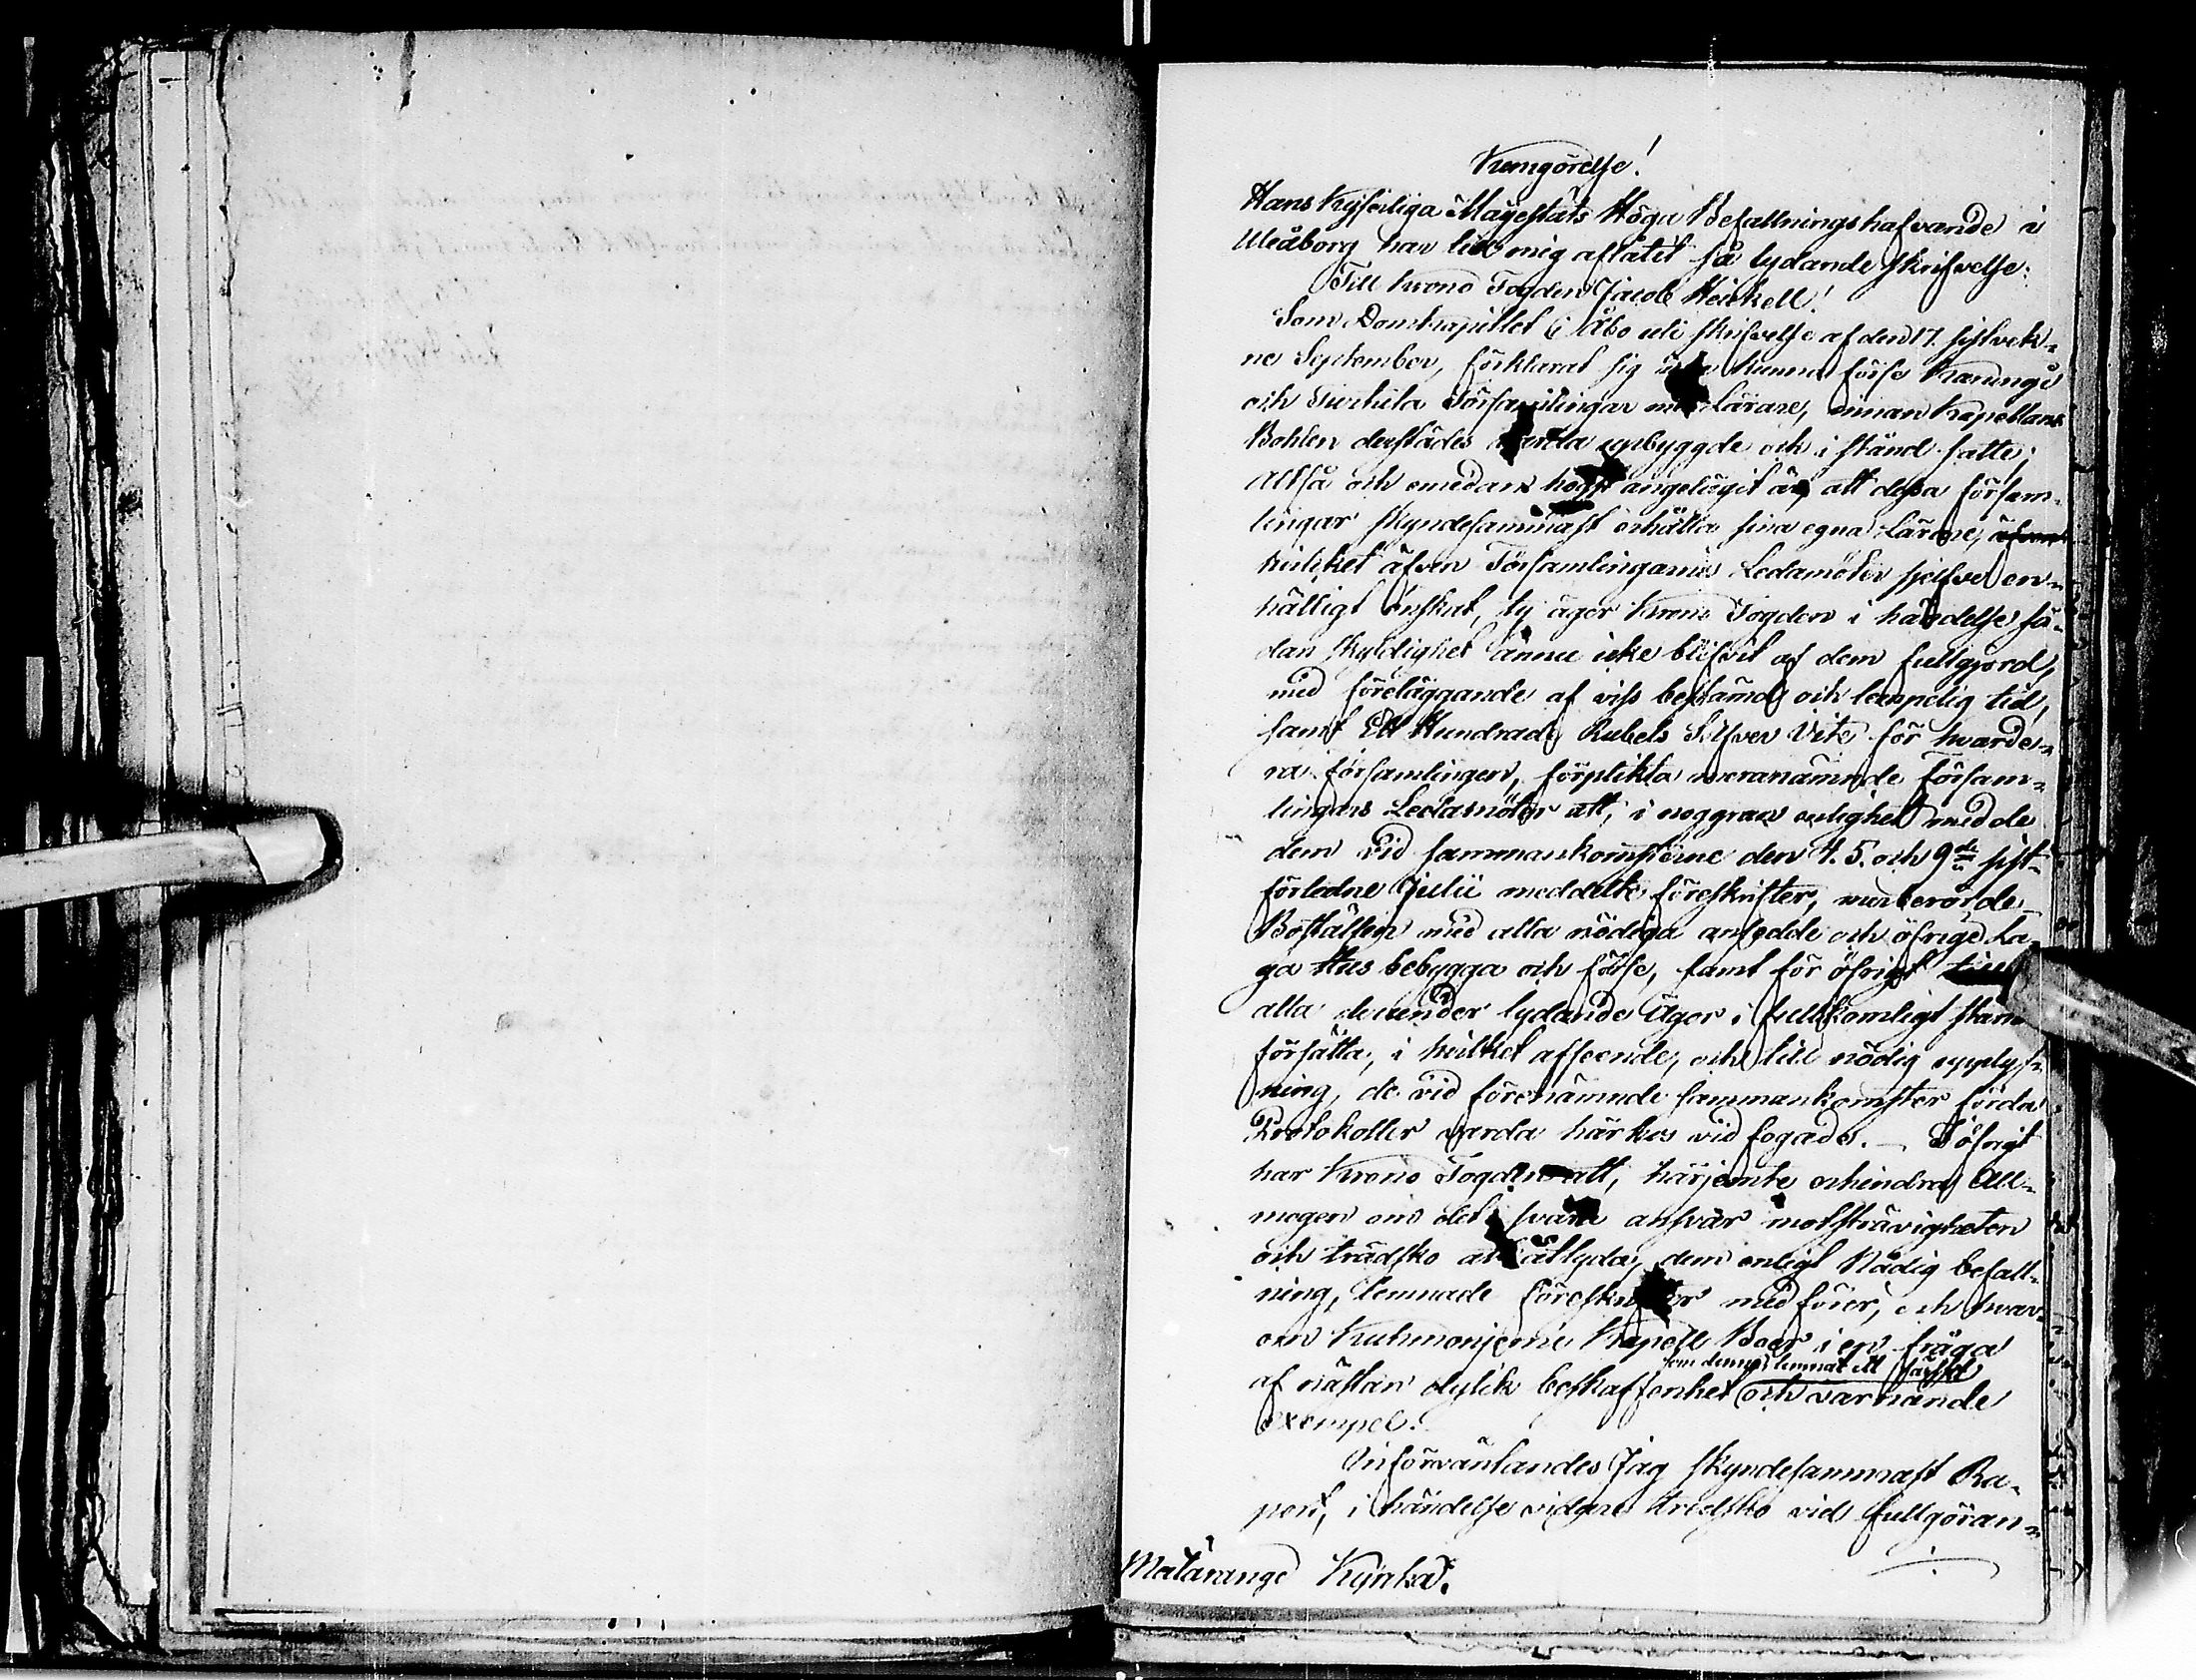 Kungörelse!
Hans Kejserliga Majestäts Höga Befallningshafvande i
Uleåborg har till mig aflåtit så lydande skrifvelse:
Till Krono Fogden Jacob Heickell!
Som Domkapitlet i Åbo uti skrifvelse af den 17. sistvek-
ne September, förklarat sig icke kunna förse Karungi
och Turtula Församlingar med Lärare, innan Kapellans
Bohlen derstädes varda uppbyggde och i stånd satte;
Altså och emedan högst angelägit är, att dessa försam-
lingar skyndesammast erhålla sina egna Lärare,
hvilket äfven Församlingarnes Ledamöter sjelfve en-
hälligt önskat, ty äger Krono Fogden i händelse så-
dan skyldighet ännu icke blifvit af dem fullgjord,
med föreläggande af viss bestämd och lempelig tid,
samt Ett Hundrade Rubels Silfver Vite för hvarde-
ra församlingen, förplikta meranämnde Försam-
lingars Ledamöter att, i noggran enlighet med de
dem vid sammankomsterne den 4. 5. och 9de sist-
förledne Julii meddelte föreskrifter, omberörde
Boställen med alla nödiga ansedde och öfrige La-
ga Hus bebygga och förse, samt för öfrigt
alla derunder lydande Ägor i fullkomligt stånd
försätta, i hvilket afseende, och till nödig upplys-
ning, de vid förenämnde sammankomster förda
Protokoller varda härhos vid fogade. - I öfrigt
har Krono Fogden att, härjemte erhindra All-
mogen om det svåra ansvar motsträvigheten
och trädsko att åtlyda, dem enligt Nådig befall-
ning, lemnade föreskrifter med förer, och hvar-
om Kuhmoniemi Kapell Boer i en fråga
af nästan dylik beskaffenhet som dem lemnat ett färskt och varnande
exempel.
Införväntandes Jag skyndesammast Ra-
port, i händelse vidare tredsko vid fullgöran-
Matarengi Kyrka.